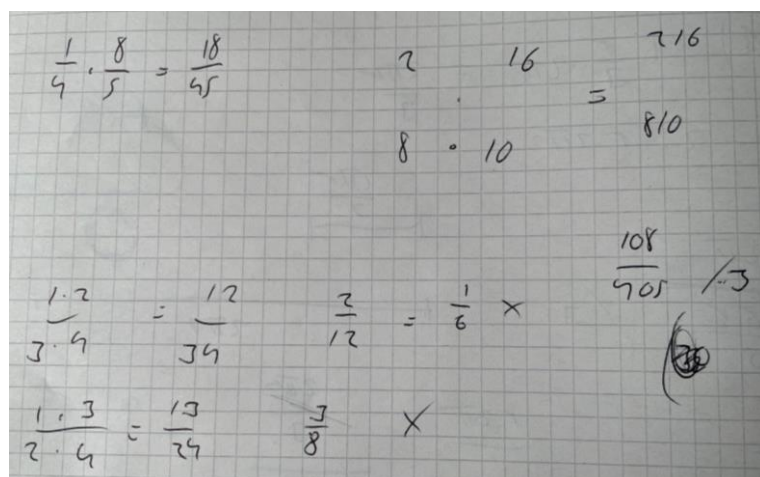 1/4 · 8/5 = 18/45
2 16 = 216
8 · 10 810
108/405 /:3
1·2/3·4 = 12/34 2/12 = 1/6 ×
1·3/2·4 = 13/24 3/8 ×